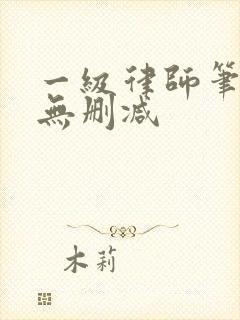 一級律師筆
無刪減
木莉